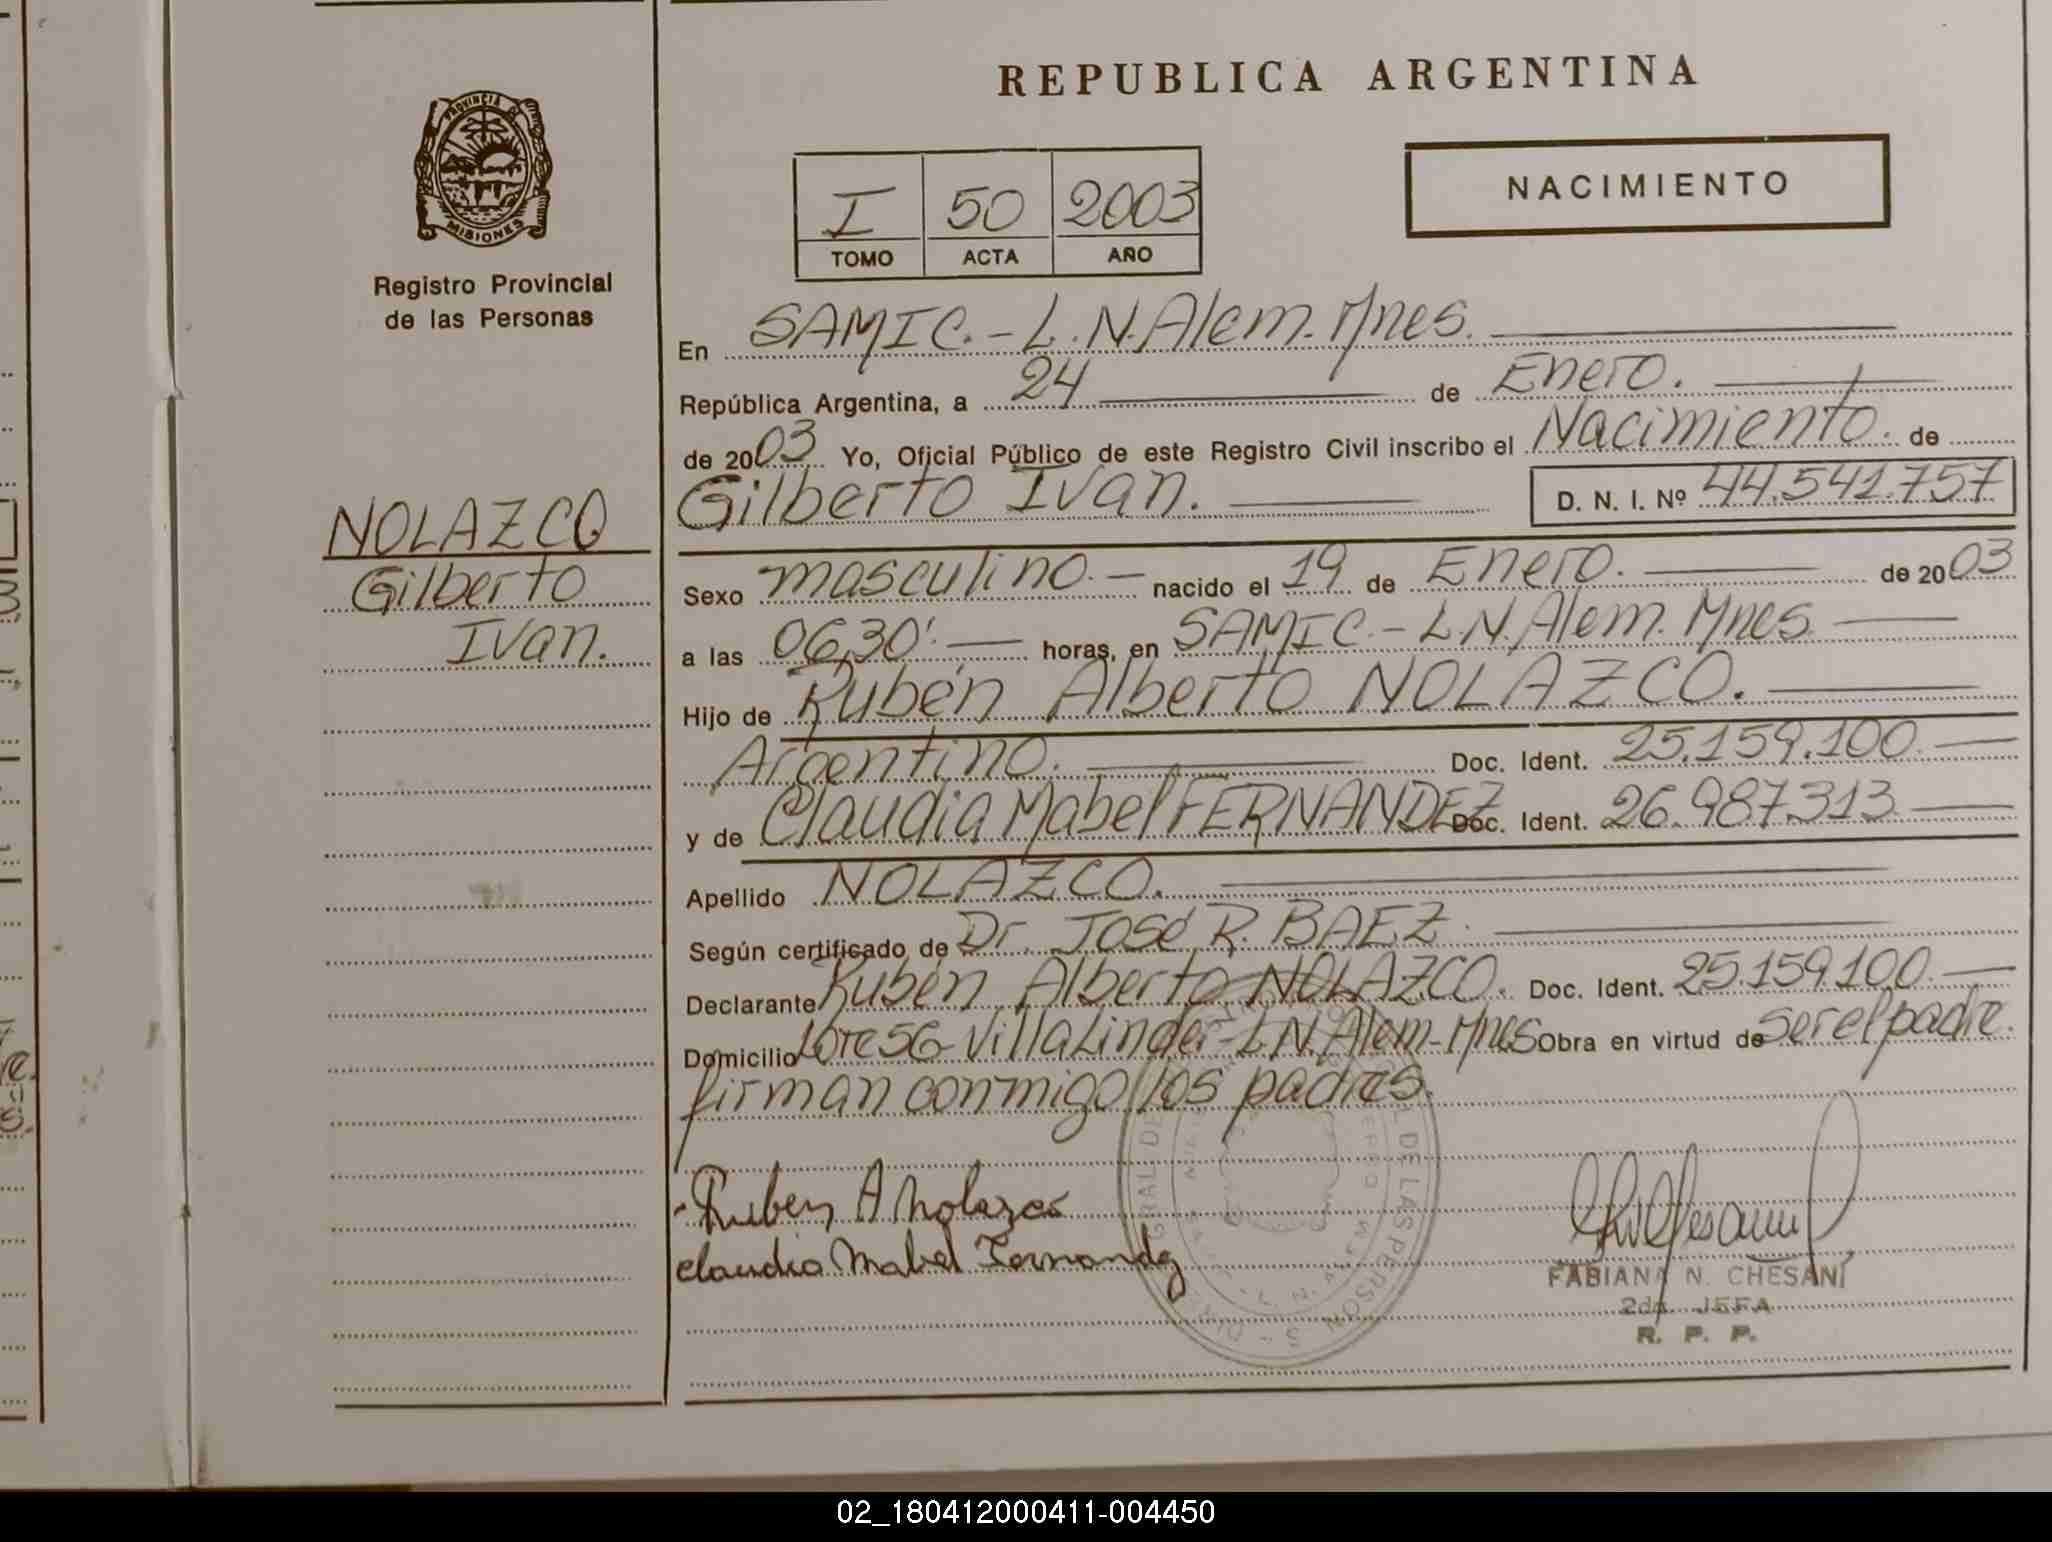 REPUBLICA ARGENTINA
NACIMIENTO
I 50 2003
TOMO ACTA AÑO
PROVINCIA DE
MISIONES
Registro Provincial
de las Personas
NOLAZCO
Gilberto
Ivan.
En SAMIC.-L.N.Alem.Mnes.
República Argentina, a 24 de Enero.
de 2003 Yo, Oficial Público de este Registro Civil inscribo el Nacimiento. de
Gilberto Ivan. D. N. I. Nº 44.541.757
Sexo masculino.- nacido el 19 de Enero. de 2003
a las 06,30'. horas, en SAMIC.-L.N.Alem.Mnes
Hijo de Rubén Alberto NOLAZCO.
Argentino. Doc. Ident. 25.159.100.
y de Claudia Mabel FERNANDEZ Doc. Ident. 26.987.313
Apellido NOLAZCO.
Según certificado de Dr. José R. BAEZ.
Declarante Rubén Alberto NOLAZCO. Doc. Ident. 25.159.100.
Domicilio Lote 56-Villa Linder-L.N.Alem-Mnes Obra en virtud de ser el padre.
firman conmigo los padres.
Ruben A Nolazco
Claudia Mabel Fernandez
DE LAS PERSON
FABIANA N. CHESANI
2da. JEFA
R. P. P.
02_180412000411-004450